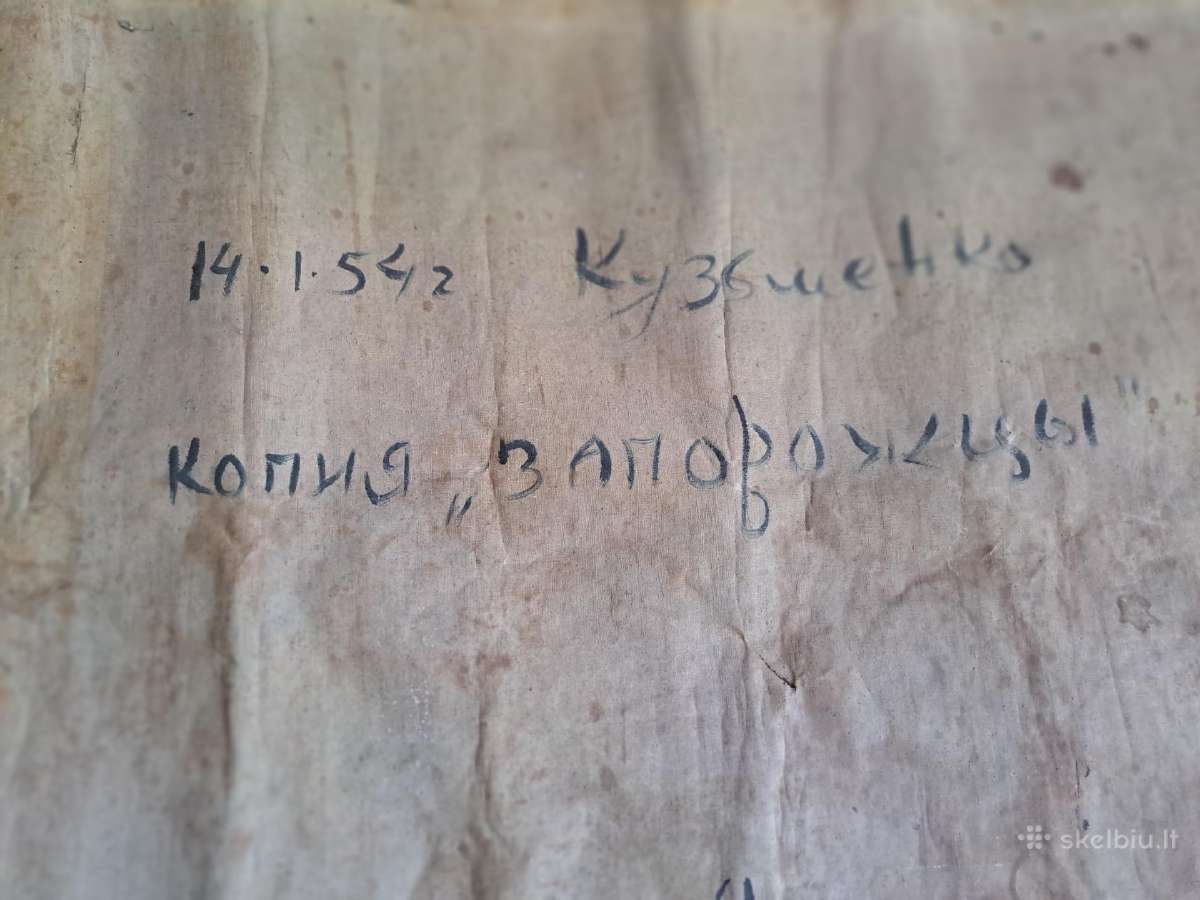 14.1.54г Кузьменко
КОПИЯ „ЗАПОРОЖЦЫ"
skelbiu.lt